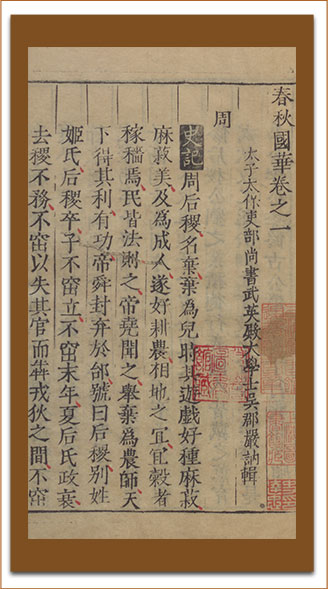 春秋國華卷之一
太子太保吏部尚書武英殿大學士吳郡嚴訥輯
周
史記周后稷名棄棄為兒時其遊戲好種麻菽
麻菽美及為成人遂好耕農相地之宜宜穀者
稼穡焉民皆法則之帝堯聞之舉棄為農師天
下得其利有功帝舜封弃於邰號曰后稷別姓
姬氏后稷卒子不窋立不窋末年夏后氏政衰
去稷不務不窋以失其官而犇戎狄之間不窋